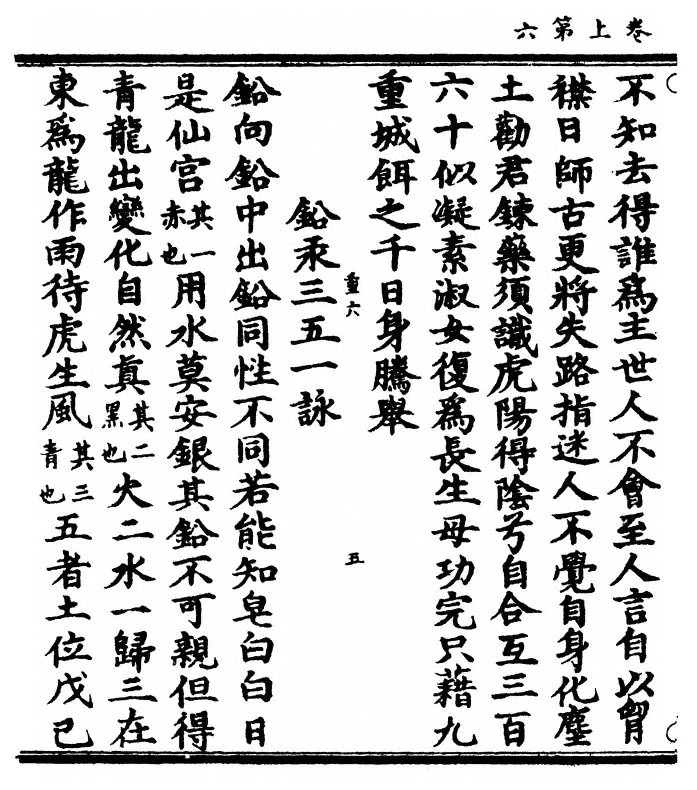 卷上第六
不知去得誰爲主世人不會至人言自以胷
襟日師古更將失路指迷人不覺自身化塵
土勸君鍊藥須識虎陽得陰兮自合互三百
六十似凝素淑女復爲長生母功完只藉九
重城餌之千日身騰舉
重六
五
鉛汞三五一詠
鉛向鉛中出鉛同性不同若能知皂白白日
是仙宮其一赤也用水莫安銀其鉛不可親但得
青龍出變化自然眞其二黑也火二水一歸三在
東爲龍作雨待虎生風其三青也五者土位戊己